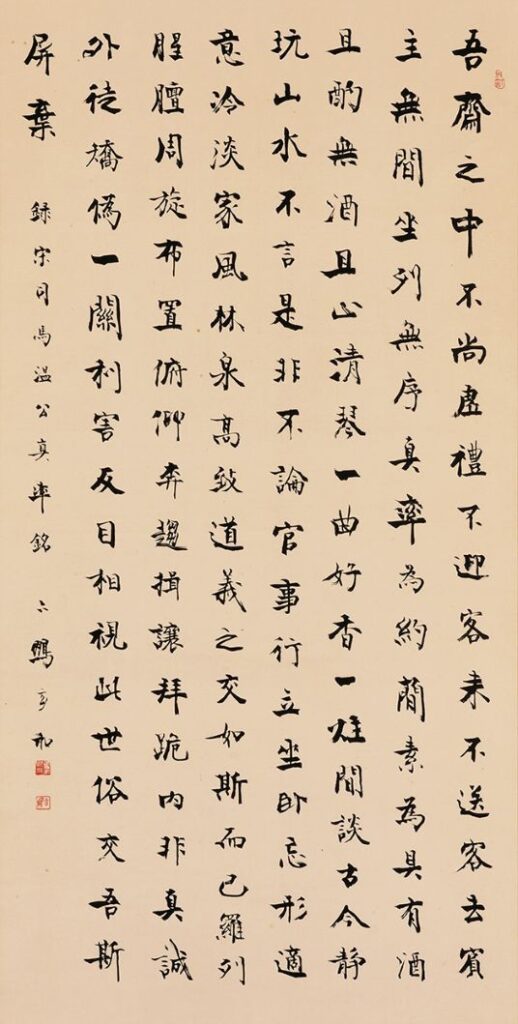 吾齋之中不尚虛禮不迎客来不送客去賓
主無間坐列無序真率為約簡素為具有酒
且酌無酒且止清琴一曲好香一炷閒談古今静
玩山水不言是非不論官事行立坐卧忘形適
意冷淡家風林泉高致道義之交如斯而已羅列
腥膻周旋布置俯仰奔趨揖讓拜跪内非真誠
外徒矯偽一關利害反目相視此世俗交吾斯
屏棄
録宋司馬溫公真率銘